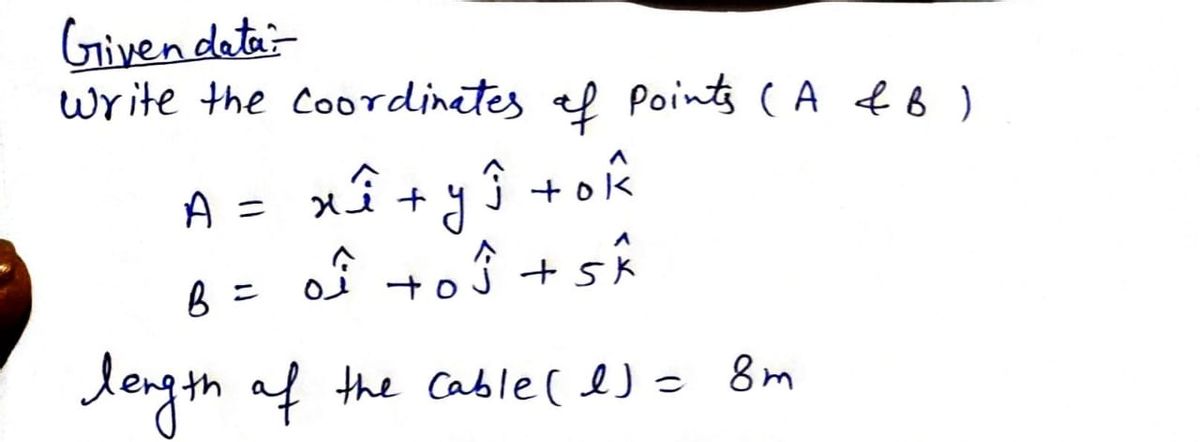 Given data:-
Write the coordinates of points (A & B)
A = xî + yĵ + 0k̂
B = 0î + 0ĵ + 5k̂
length of the cable(l) = 8m